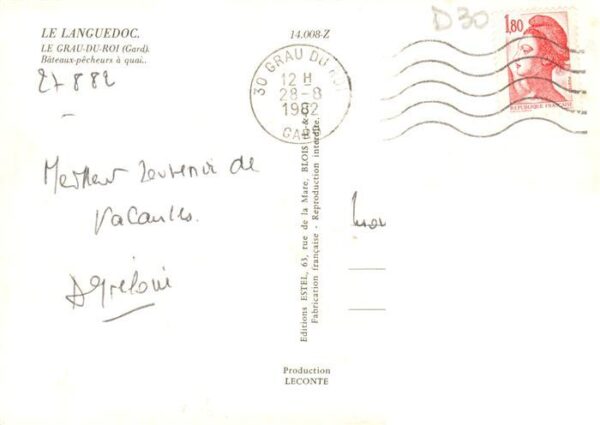 LE LANGUEDOC.
LE GRAU-DU-ROI (Gard).
Bâteaux-pêcheurs à quai..
27 8 82
Meilleur souvenir de
Vacances.
14.008-Z
30 GRAU DU ROI
12 H
28-8
1982
GARD
D30
1,80
REPUBLIQUE FRANCAISE
Editions ESTEL, 63, rue de la Mare, BLOIS
Fabrication française - Reproduction interdite.
Production
LECONTE